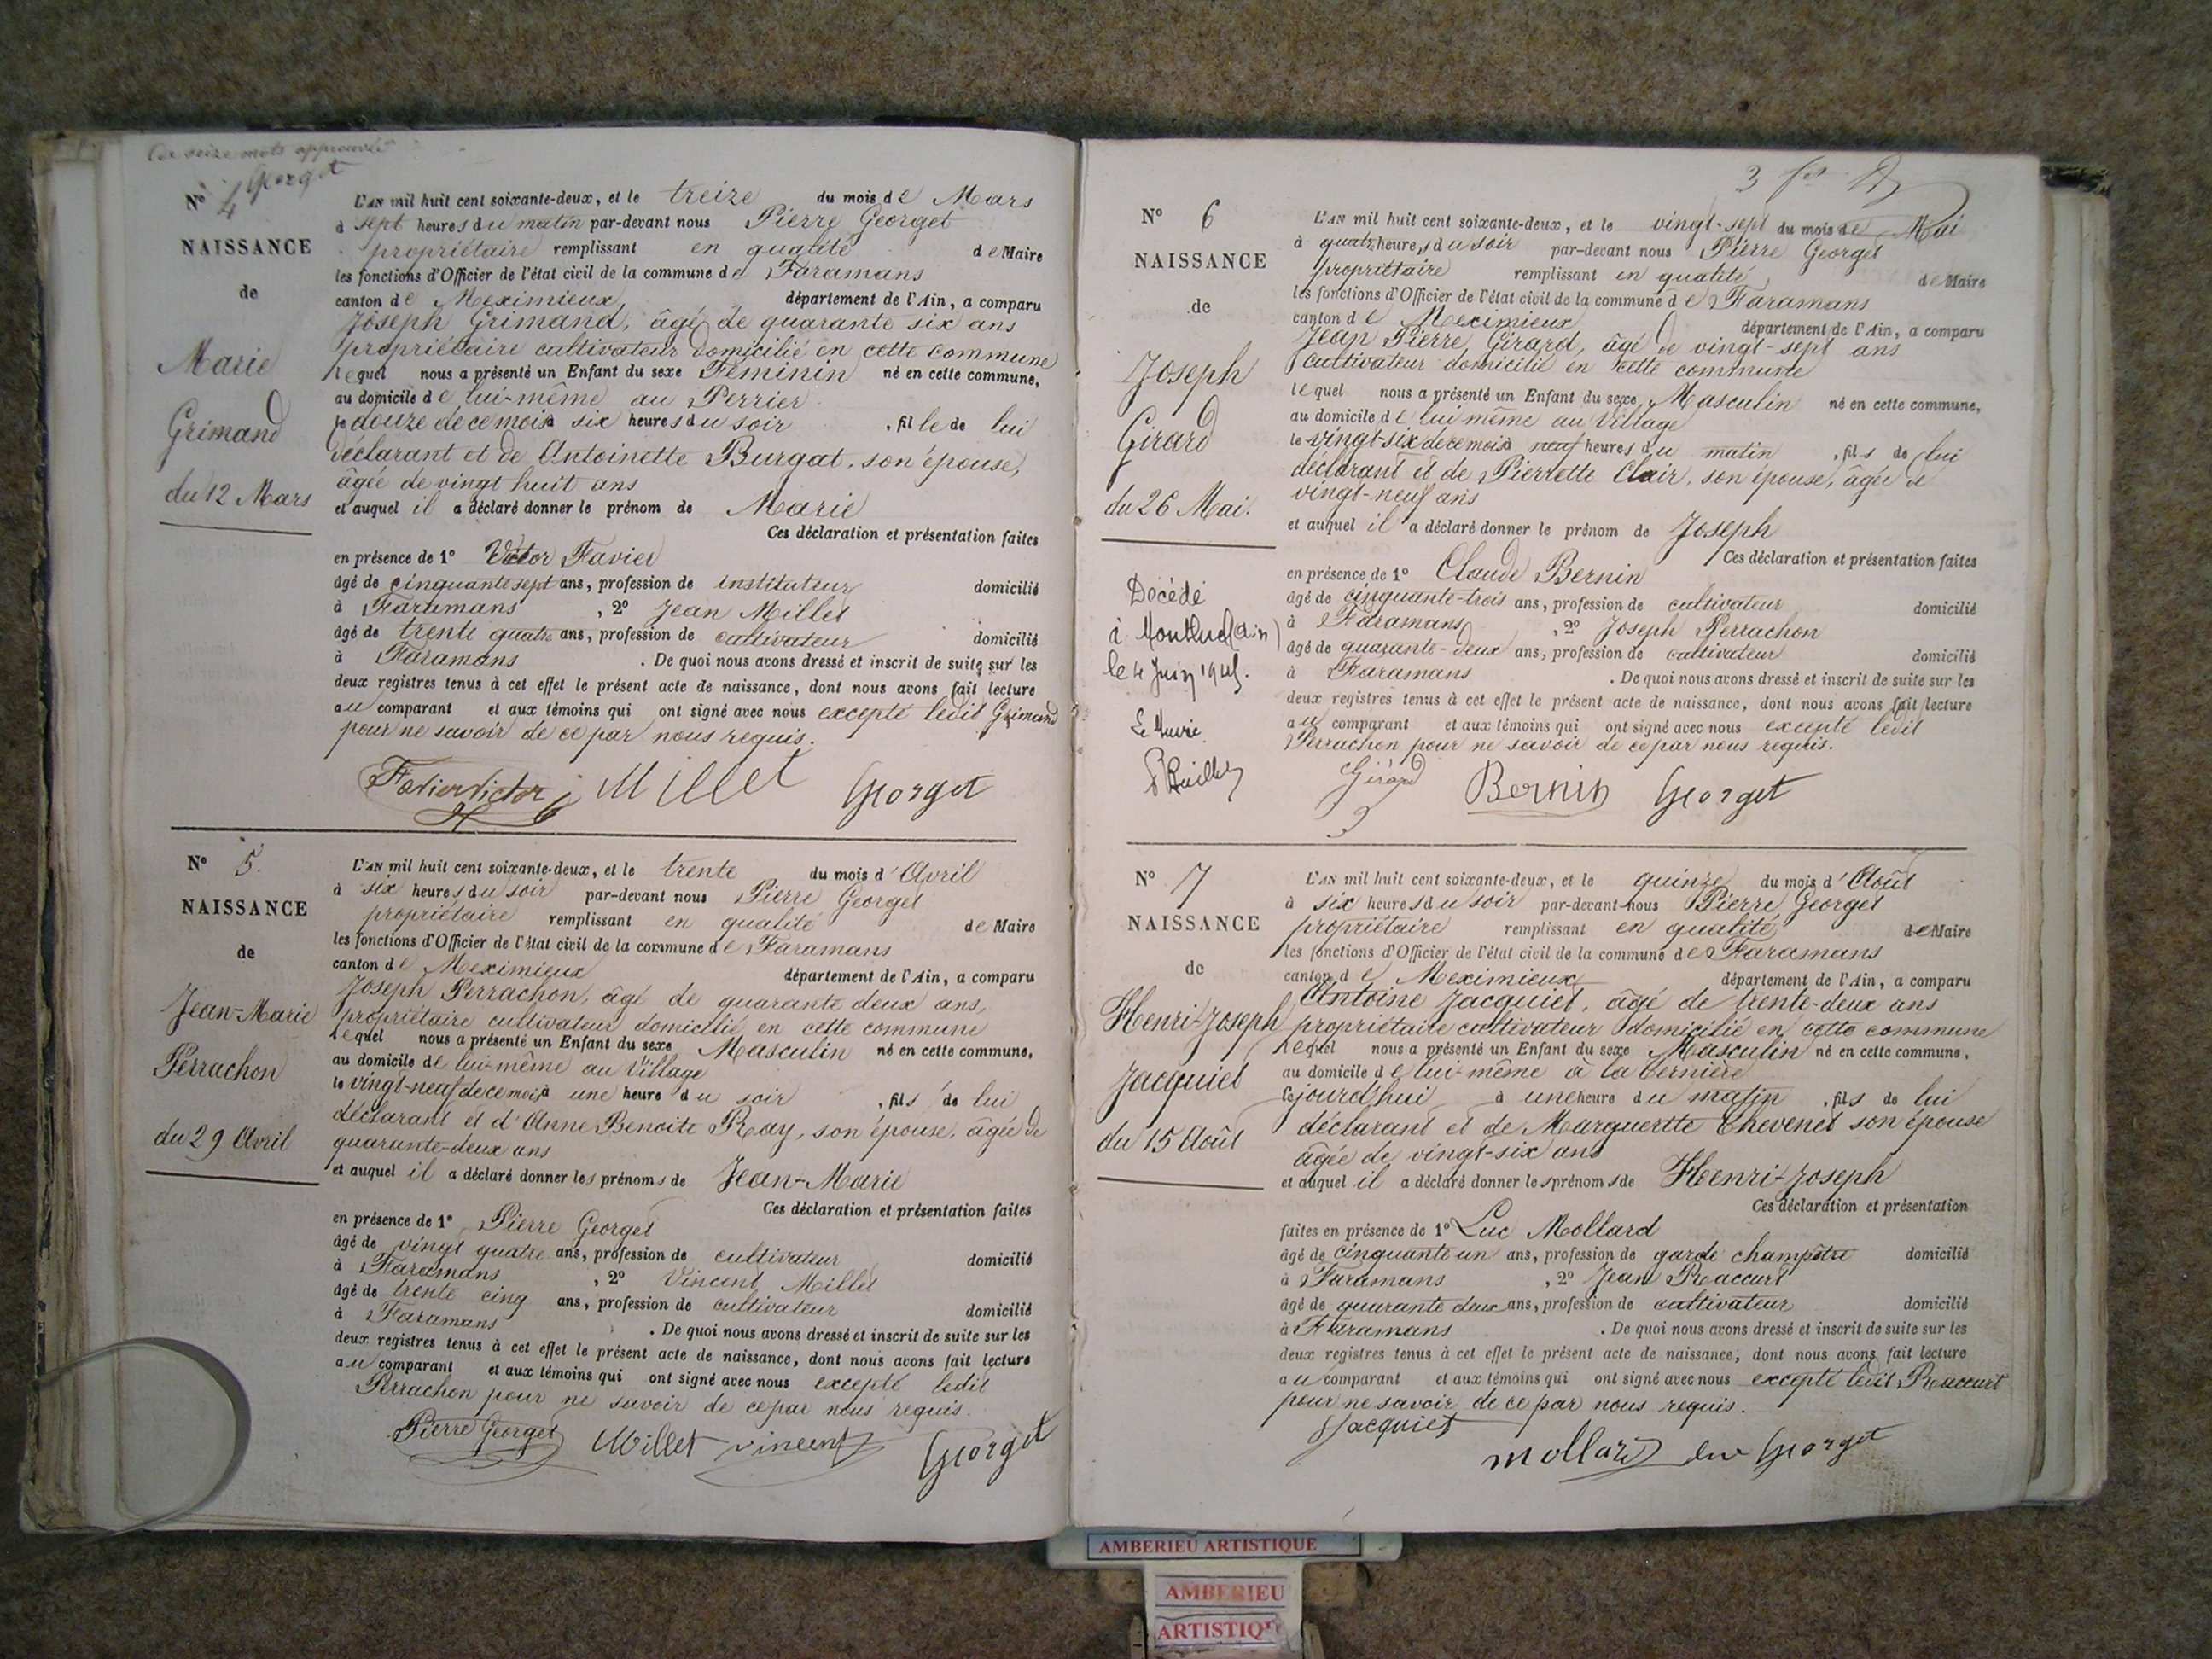 Ces seize mots approuvés
Georget
N° 4
NAISSANCE
de
Marie
Grimand
du 12 Mars
L'AN mil huit cent soixante-deux, et le treize du mois de Mars
à sept heures du matin par-devant nous Pierre Georget
propriétaire remplissant en qualité de Maire
les fonctions d'Officier de l'état civil de la commune de Faramans
canton de Meximieux, département de l'Ain, a comparu
Joseph Grimand, âgé de quarante six ans
propriétaire cultivateur domicilié en cette commune
lequel nous a présenté un Enfant du sexe Féminin né en cette commune,
au domicile de lui-même au Perrier
le douze de ce mois à six heures du soir, fille de lui
déclarant et de Antoinette Burgat, son épouse,
âgée de vingt huit ans
et auquel il a déclaré donner le prénom de Marie
Ces déclaration et présentation faites
en présence de 1° Victor Favier
âgé de cinquante sept ans, profession de instituteur domicilié
à Faramans, 2° Jean Millet
âgé de trente quatre ans, profession de cultivateur domicilié
à Faramans. De quoi nous avons dressé et inscrit de suite sur les
deux registres tenus à cet effet le présent acte de naissance, dont nous avons fait lecture
au comparant et aux témoins qui ont signé avec nous excepté ledit Grimand
pour ne savoir de ce par nous requis.
Favier Victor Millet Georget
N° 5.
NAISSANCE
de
Jean-Marie
Perrachon
du 29 Avril
L'AN mil huit cent soixante-deux, et le trente du mois d'Avril
à six heures du soir par-devant nous Pierre Georget
propriétaire remplissant en qualité de Maire
les fonctions d'Officier de l'état civil de la commune de Faramans
canton de Meximieux département de l'Ain, a comparu
Joseph Perrachon, âgé de quarante deux ans,
propriétaire cultivateur domicilié en cette commune
lequel nous a présenté un Enfant du sexe Masculin né en cette commune,
au domicile de lui-même au Village
le vingt-neuf de ce mois à une heure du soir, fils de lui
déclarant et d'Anne Benoite Ray, son épouse, âgée de
quarante-deux ans
et auquel il a déclaré donner les prénoms de Jean-Marie
Ces déclaration et présentation faites
en présence de 1° Pierre Georget
âgé de vingt quatre ans, profession de cultivateur domicilié
à Faramans, 2° Vincent Millet
âgé de trente cinq ans, profession de cultivateur domicilié
à Faramans. De quoi nous avons dressé et inscrit de suite sur les
deux registres tenus à cet effet le présent acte de naissance, dont nous avons fait lecture
au comparant et aux témoins qui ont signé avec nous excepté ledit
Perrachon pour ne savoir de ce par nous requis.
Pierre Georget Millet vincent Georget
3
N° 6
NAISSANCE
de
Joseph
Girard
du 26 Mai.
Décédé
à Montluel (Ain)
le 4 Juin 1945.
Le Maire
L'AN mil huit cent soixante-deux, et le vingt-sept du mois de Mai
à quatre heures du soir par-devant nous Pierre Georget
propriétaire remplissant en qualité de Maire
les fonctions d'Officier de l'état civil de la commune de Faramans
canton de Meximieux département de l'Ain, a comparu
Jean Pierre Girard, âgé de vingt-sept ans
cultivateur domicilié en cette commune
lequel nous a présenté un Enfant du sexe Masculin né en cette commune,
au domicile de lui même au Village
le vingt-six de ce mois à neuf heures du matin, fils de lui
déclarant et de Pierrette Clair, son épouse, âgée de
vingt-neuf ans
et auquel il a déclaré donner le prénom de Joseph
Ces déclaration et présentation faites
en présence de 1° Claude Bernin
âgé de cinquante-trois ans, profession de cultivateur domicilié
à Faramans, 2° Joseph Perrachon
âgé de quarante-deux ans, profession de cultivateur domicilié
à Faramans. De quoi nous avons dressé et inscrit de suite sur les
deux registres tenus à cet effet le présent acte de naissance, dont nous avons fait lecture
au comparant et aux témoins qui ont signé avec nous excepté ledit
Perrachon pour ne savoir de ce par nous requis.
Girard Bernin Georget
N° 7
NAISSANCE
de
Henri-Joseph
Jacquiet
du 15 Août
L'AN mil huit cent soixante-deux, et le quinze du mois d'Août
à six heures du soir par-devant nous Pierre Georget
propriétaire remplissant en qualité de Maire
les fonctions d'Officier de l'état civil de la commune de Faramans
canton de Meximieux département de l'Ain, a comparu
Antoine Jacquiet, âgé de trente-deux ans
propriétaire cultivateur domicilié en cette commune
lequel nous a présenté un Enfant du sexe Masculin né en cette commune,
au domicile de lui-même à la Bernière
cejourd'hui à une heure du matin, fils de lui
déclarant et de Marguerite Thevenet son épouse
âgée de vingt-six ans
et auquel il a déclaré donner les prénoms de Henri-Joseph
Ces déclaration et présentation
faites en présence de 1° Luc Mollard
âgé de cinquante un ans, profession de garde champêtre domicilié
à Faramans, 2° Jean Raccurt
âgé de quarante deux ans, profession de cultivateur domicilié
à Faramans. De quoi nous avons dressé et inscrit de suite sur les
deux registres tenus à cet effet le présent acte de naissance, dont nous avons fait lecture
au comparant et aux témoins qui ont signé avec nous excepté ledit Raccurt
pour ne savoir de ce par nous requis.
Jacquiet
mollard luc Georget
AMBERIEU ARTISTIQUE
AMBERIEU
ARTISTIQUE